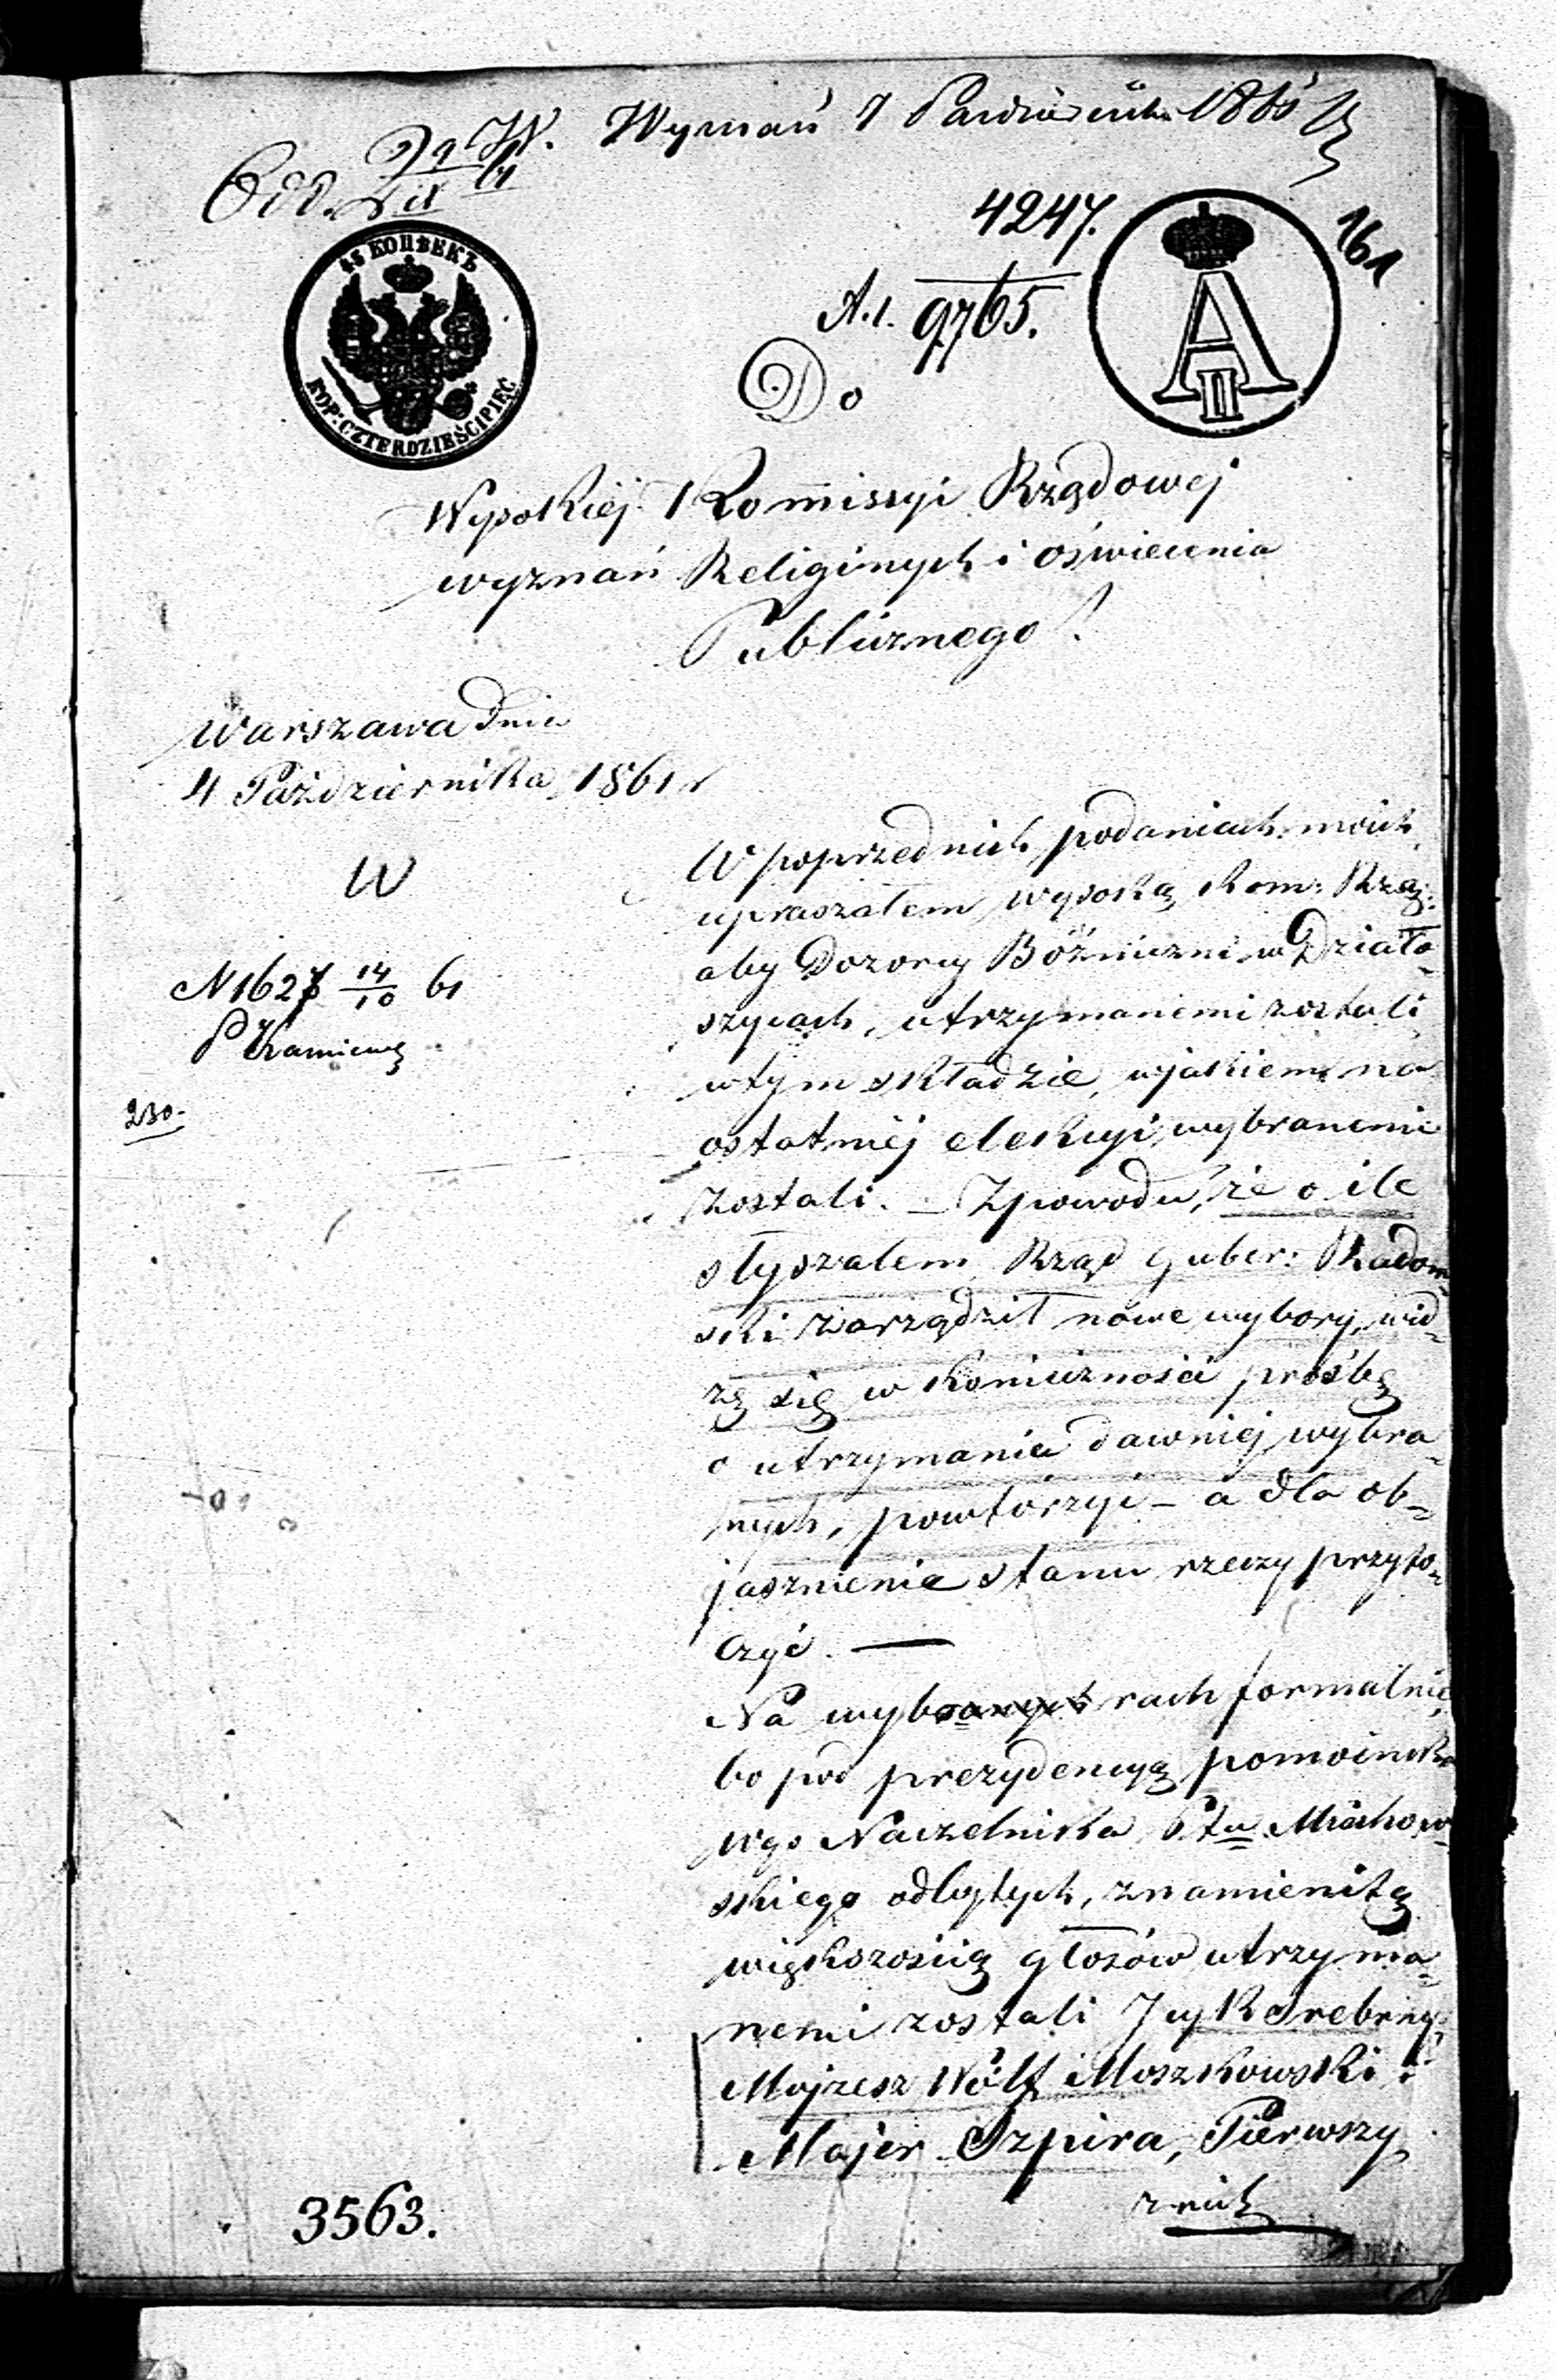 W. Wyznań 7 Października 1861
Odd. 2 9/IX 61
4247.
161
A.1. 9765.
45 КОПѢЕКЪ
KOP: CZTERDZIEŚCI PIĘĆ
A II
Do
Wysokiéj Kommissyi Rządowej
wyznań Religijnych i oświecenia
Publicznego!
Warszawa dnia
4 Października 1861 r
W
N 1627 14/10 61
230.
W poprzednich podaniach moich,
upraszałem wysoką Kom: Rzą:
aby Dozorcy Bóźniczni w Działo-
szycach, utrzymanemi zostali
w tym składzie, w jakiem na
ostatniéj elekcyi, wybranemi
zostali. – Z powodu, że o ile
słyszałem Rząd guber: Radom
ski zarządził nowe wybory, wid-
zę się w konieczności prośbę
o utrzymanie dawniej wybra-
nych, powtórzyć – a dla ob-
jasznienia stanu rzeczy przyto-
czyć. —
Na wybranych rach formalnie,
bo pod prezydencyą pomocnika
Wgo Naczelnika Ptu Miechow-
skiego odbytych, znamienitą
większością głosów utrzyma-
nemi zostali Icyk Srebrny,
Mojzesz Wolf Moszkowski i
Majer Szpira, Pierwszy
z nich
3563.